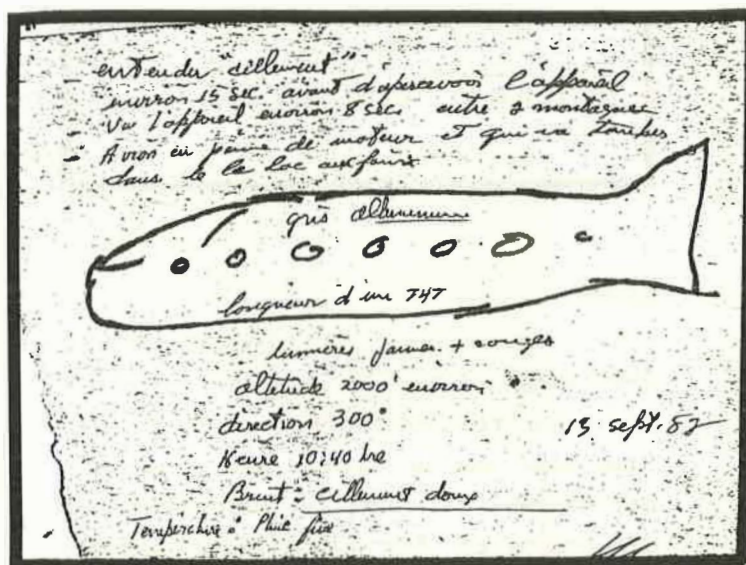 - entendu "cillement"
environ 15 sec. avant d'apercevoir l'appareil
- Vu l'appareil environ 8 sec. entre 2 montagnes
- Avion en panne de moteur et qui va tomber
dans le lac aux
gris alluminium
longueur d'un 747
lumières jaunes + rouges
altitude 2000' environ
direction 300°
15 sept. 82
Heure 10:40 hre
Bruit = cillement doux
Température : Pluie fine